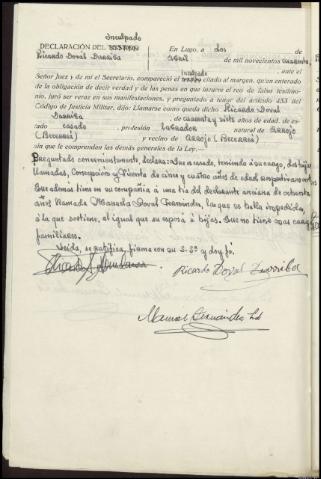 Inculpado
DECLARACIÓN DEL TESTIGO
Ricardo Doval Barriba
En Lugo, a dos de
Abril de mil novecientos cuarenta, ante el
Señor Juez y de mi el Secretario, compareció el inculpado citado al margen, quien enterado
de la obligación de decir verdad y de las penas en que incurre el reo de falso testimo-
nio, juró ser veraz en sus manifestaciones, y preguntado a tenor del artículo 453 del
Código de Justicia Militar, dijo: Llamarse como queda dicho Ricardo Doval
Barriba de cuarenta y siete años de edad, de es-
tado casado, profesión labrador natural de Arrojo
(Becerreá) y vecino de Arrojo (Becerreá)
que le comprenden las demás generales de la Ley.
Preguntado convenientemente, declara: Que es casado, teniendo a su cargo, dos hijos
llamados, Concepción y Vicente de cinco y cuatro años de edad respectivamente.
Que además tiene en su compañía a una tía del declarante anciana de ochenta
años llamada Manuela Doval Fernández, la que se halla impedida,
a la que sostiene, al igual que su esposa e hijos. Que no tiene más cargas
familiares.
Leída, se ratifica, firma con su Sª y doy fé.
Ricardo Doval Barriba
Manuel Fernández